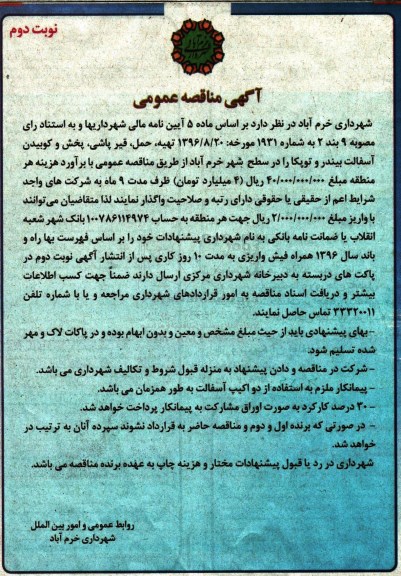 نوبت دوم
آگهی مناقصه عمومی
شهرداری خرم آباد در نظر دارد بر اساس ماده ۵ آیین نامه مالی شهرداریها و به استناد رای
مصوبه ۹ بند ۲ به شماره ۱۹۳۱ مورخه: ۱۳۹۶/۸/۲۰ تهیه، حمل، قیر پاشی، پخش و کوبیدن
آسفالت بیندر و توپکا را در سطح شهر خرم آباد از طریق مناقصه عمومی با برآورد هزینه هر
منطقه مبلغ ۴۰/۰۰۰/۰۰۰/۰۰۰ ریال (۴ میلیارد تومان) ظرف مدت ۹ ماه به شرکت های واجد
شرایط اعم از حقیقی یا حقوقی دارای رتبه و صلاحیت واگذار نمایند لذا متقاضیان می‌توانند
با واریز مبلغ ۲/۰۰۰/۰۰۰/۰۰۰ ریال جهت هر منطقه به حساب ۱۰۰۷۸۶۱۱۴۹۷۴ بانک شهر شعبه
انقلاب یا ضمانت نامه بانکی به نام شهرداری پیشنهادات خود را بر اساس فهرست بها راه و
باند سال ۱۳۹۶ همراه فیش واریزی به مدت ۱۰ روز کاری پس از انتشار آگهی نوبت دوم در
پاکت های دربسته به دبیرخانه شهرداری مرکزی ارسال دارند ضمناً جهت کسب اطلاعات
بیشتر و دریافت اسناد مناقصه به امور قراردادهای شهرداری مراجعه و یا با شماره تلفن
۳۳۳۲۰۰۱۱ تماس حاصل نمایند.
-بهای پیشنهادی باید از حیث مبلغ مشخص و معین و بدون ابهام بوده و در پاکات لاک و مهر
شده تسلیم شود.
-شرکت در مناقصه و دادن پیشنهاد به منزله قبول شروط و تکالیف شهرداری می باشد.
- پیمانکار ملزم به استفاده از دو اکیپ آسفالت به طور همزمان می باشد.
-۳۰ درصد کارکرد به صورت اوراق مشارکت به پیمانکار پرداخت خواهد شد.
- در صورتی که برنده اول و دوم و مناقصه حاضر به قرارداد نشوند سپرده آنان به ترتیب در
خواهد شد.
شهرداری در رد یا قبول پیشنهادات مختار و هزینه چاپ به عهده برنده مناقصه می باشد.
روابط عمومی و امور بین الملل
شهرداری خرم آباد